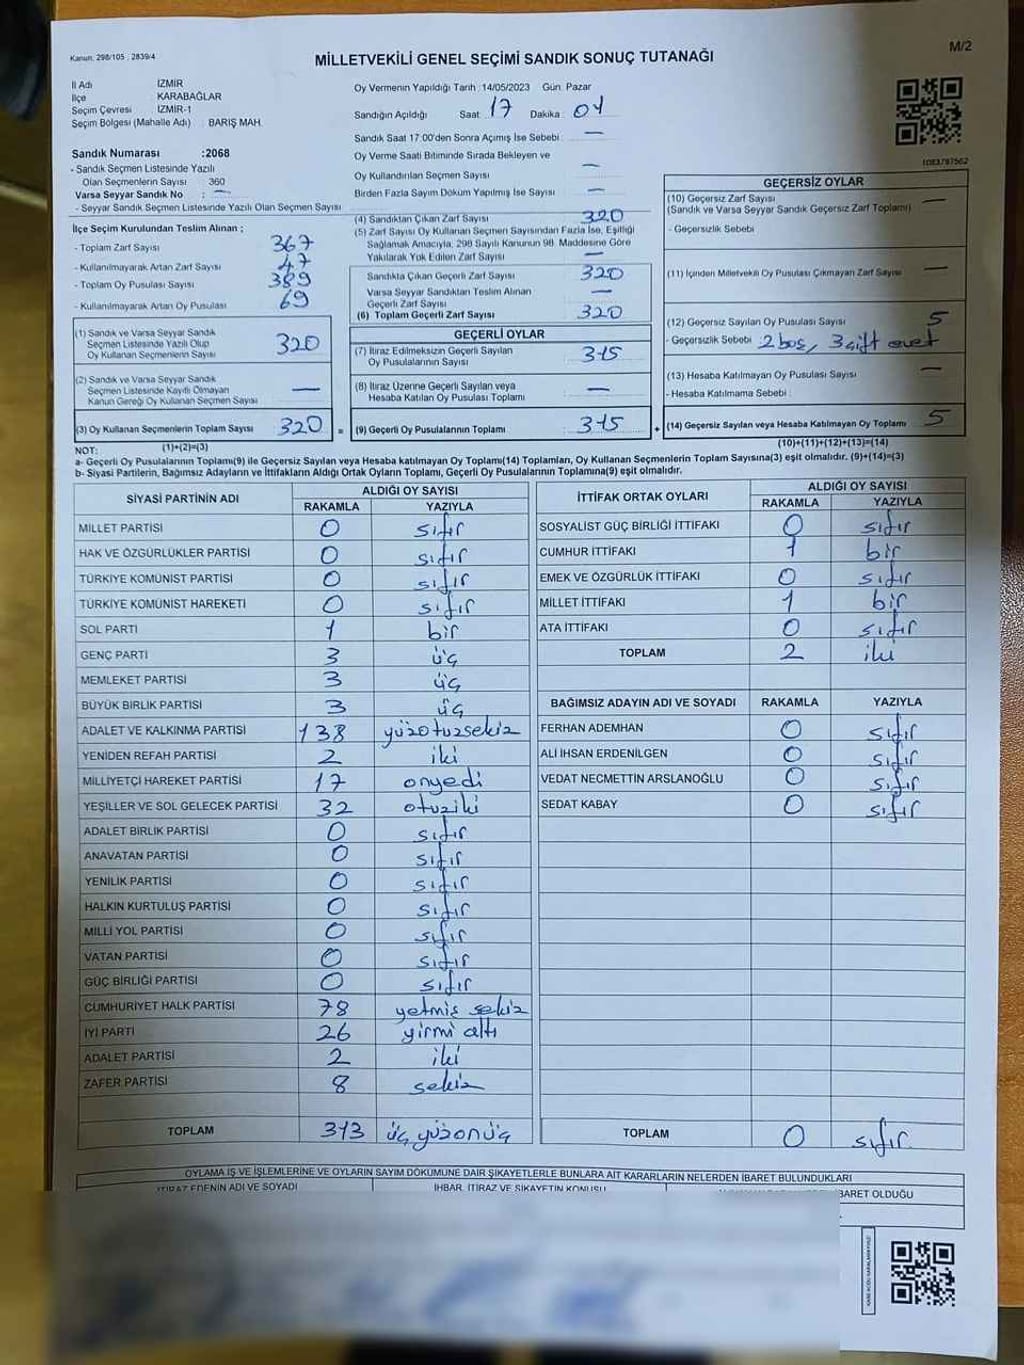 Kanun: 298/105 ; 2839/4
MİLLETVEKİLİ GENEL SEÇİMİ SANDIK SONUÇ TUTANAĞI
M/2
İl Adı İZMİR
İlçe KARABAĞLAR
Seçim Çevresi İZMİR-1
Seçim Bölgesi (Mahalle Adı) : BARIŞ MAH.
Sandık Numarası :2068
- Sandık Seçmen Listesinde Yazılı
Olan Seçmenlerin Sayısı 360
Varsa Seyyar Sandık No : —
- Seyyar Sandık Seçmen Listesinde Yazılı Olan Seçmen Sayısı
İlçe Seçim Kurulundan Teslim Alınan ;
- Toplam Zarf Sayısı 367
- Kullanılmayarak Artan Zarf Sayısı 47
- Toplam Oy Pusulası Sayısı 389
- Kullanılmayarak Artan Oy Pusulası 69
(1) Sandık ve Varsa Seyyar Sandık
Seçmen Listesinde Yazılı Olup
Oy Kullanan Seçmenlerin Sayısı 320
(2) Sandık ve Varsa Seyyar Sandık
Seçmen Listesinde Kayıtlı Olmayan
Kanun Gereği Oy Kullanan Seçmen Sayısı —
(3) Oy Kullanan Seçmenlerin Toplam Sayısı 320
(1)+(2)=(3)
Oy Vermenin Yapıldığı Tarih :14/05/2023 Gün: Pazar
Sandığın Açıldığı Saat: 17 Dakika: 04
Sandık Saat 17:00'den Sonra Açımış İse Sebebi : —
Oy Verme Saati Bitiminde Sırada Bekleyen ve
Oy Kullandırılan Seçmen Sayısı —
Birden Fazla Sayım Döküm Yapılmış İse Sayısı —
(4) Sandıktan Çıkan Zarf Sayısı 320
(5) Zarf Sayısı Oy Kullanan Seçmen Sayısından Fazla İse, Eşitliği
Sağlamak Amacıyla, 298 Sayılı Kanunun 98. Maddesine Göre
Yakılarak Yok Edilen Zarf Sayısı —
Sandıkta Çıkan Geçerli Zarf Sayısı 320
Varsa Seyyar Sandıktan Teslim Alınan
Geçerli Zarf Sayısı —
(6) Toplam Geçerli Zarf Sayısı 320
GEÇERLİ OYLAR
(7) İtiraz Edilmeksizin Geçerli Sayılan
Oy Pusulalarının Sayısı 315
(8) İtiraz Üzerine Geçerli Sayılan veya
Hesaba Katılan Oy Pusulası Toplamı —
= (9) Geçerli Oy Pusulalarının Toplamı 315
1083787562
GEÇERSİZ OYLAR
(10) Geçersiz Zarf Sayısı —
(Sandık ve Varsa Seyyar Sandık Geçersiz Zarf Toplamı)
- Geçersizlik Sebebi
(11) İçinden Milletvekili Oy Pusulası Çıkmayan Zarf Sayısı —
(12) Geçersiz Sayılan Oy Pusulası Sayısı 5
- Geçersizlik Sebebi 2 boş, 3 çift evet
(13) Hesaba Katılmayan Oy Pusulası Sayısı —
- Hesaba Katılmama Sebebi :
+ (14) Geçersiz Sayılan veya Hesaba Katılmayan Oy Toplamı 5
(10)+(11)+(12)+(13)=(14)
NOT:
a- Geçerli Oy Pusulalarının Toplamı(9) ile Geçersiz Sayılan veya Hesaba katılmayan Oy Toplamı(14) Toplamları, Oy Kullanan Seçmenlerin Toplam Sayısına(3) eşit olmalıdır. (9)+(14)=(3)
b- Siyasi Partilerin, Bağımsız Adayların ve İttifakların Aldığı Ortak Oyların Toplamı, Geçerli Oy Pusulalarının Toplamına(9) eşit olmalıdır.
SİYASİ PARTİNİN ADI ALDIĞI OY SAYISI
RAKAMLA YAZIYLA
MİLLET PARTİSİ 0 sıfır
HAK VE ÖZGÜRLÜKLER PARTİSİ 0 sıfır
TÜRKİYE KOMÜNİST PARTİSİ 0 sıfır
TÜRKİYE KOMÜNİST HAREKETİ 0 sıfır
SOL PARTİ 1 bir
GENÇ PARTİ 3 üç
MEMLEKET PARTİSİ 3 üç
BÜYÜK BİRLİK PARTİSİ 3 üç
ADALET VE KALKINMA PARTİSİ 138 yüzotuzsekiz
YENİDEN REFAH PARTİSİ 2 iki
MİLLİYETÇİ HAREKET PARTİSİ 17 onyedi
YEŞİLLER VE SOL GELECEK PARTİSİ 32 otuziki
ADALET BİRLİK PARTİSİ 0 sıfır
ANAVATAN PARTİSİ 0 sıfır
YENİLİK PARTİSİ 0 sıfır
HALKIN KURTULUŞ PARTİSİ 0 sıfır
MİLLİ YOL PARTİSİ 0 sıfır
VATAN PARTİSİ 0 sıfır
GÜÇ BİRLİĞİ PARTİSİ 0 sıfır
CUMHURİYET HALK PARTİSİ 78 yetmiş sekiz
İYİ PARTİ 26 yirmi altı
ADALET PARTİSİ 2 iki
ZAFER PARTİSİ 8 sekiz
TOPLAM 313 üç yüzonüç
İTTİFAK ORTAK OYLARI ALDIĞI OY SAYISI
RAKAMLA YAZIYLA
SOSYALİST GÜÇ BİRLİĞİ İTTİFAKI 0 sıfır
CUMHUR İTTİFAKI 1 bir
EMEK VE ÖZGÜRLÜK İTTİFAKI 0 sıfır
MİLLET İTTİFAKI 1 bir
ATA İTTİFAKI 0 sıfır
TOPLAM 2 iki
BAĞIMSIZ ADAYIN ADI VE SOYADI RAKAMLA YAZIYLA
FERHAN ADEMHAN 0 sıfır
ALİ İHSAN ERDENİLGEN 0 sıfır
VEDAT NECMETTİN ARSLANOĞLU 0 sıfır
SEDAT KABAY 0 sıfır
TOPLAM 0 sıfır
OYLAMA İŞ VE İŞLEMLERİNE VE OYLARIN SAYIM DÖKÜMÜNE DAİR ŞİKAYETLERLE BUNLARA AİT KARARLARIN NELERDEN İBARET BULUNDUKLARI
İTİRAZ EDENİN ADI VE SOYADI İHBAR, İTİRAZ VE ŞİKAYETİN KONUSU İBARET OLDUĞU